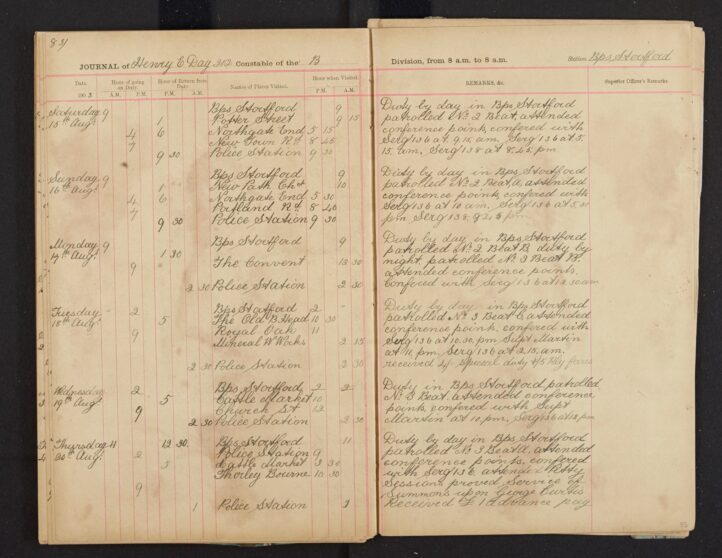 84
JOURNAL of Henry E Day 212 Constable of the B
Date. Hour of going on Duty. Hour of Return from Duty. Names of Places Visited. Hour when Visited.
A.M. P.M. P.M. A.M. P.M. A.M.
Saturday 9 Bps Stortford 9
15th Augt 1 Potter Street 9 15
4 6 Northgate End 5 15
7 New Town Rd 8 45
9 30 Police Station 9 30
Sunday 9 Bps Stortford 9
16th Augt 1 New Path 10
4 6 Northgate End 5 30
7 Portland Rd 8 40
9 30 Police Station 9 30
Monday 9 Bps Stortford 9
17th Augt 1 30
9 The Convent 12 30
2 30 Police Station 2 30
Tuesday 2 Bps Stortford 2
18th Augt 5 The Old B. Head 10 30
9 Royal Oak 11
Mineral W Works 2 15
2 30 Police Station 2 30
Wednesday 2 Bps Stortford 2
19th Augt 5 Cattle Market 10
9 Church St 12
2 30 Police Station 2 30
Thursday 11 12 30 Bps Stortford 11
20th Augt 2 Police Station 9
3 Cattle Market 3 30
9 Thorley Bourne 10 30
1 Police Station 1
Division, from 8 a.m. to 8 a.m. Station Bps Stortford
REMARKS, &c. Superior Officer's Remarks.
Duty by day in Bps Stortford
patrolled No 2 Beat, attended
conference points, confered with
Serg 136 at 9.15 am, Serg 136 at 5.
15. am, Serg 138 at 8.45 pm
Duty by day in Bps Stortford
patrolled No 2 Beat, attended
conference points, confered with
Serg 136 at 10 am, Serg 136 at 5.30
pm Serg 138
Duty by day in Bps Stortford
patrolled No 2 Beat B, duty by
night patrolled No 3 Beat
attended conference points,
Confered with Serg 136 at 12.30 am
Duty by day in Bps Stortford
patrolled No 3 Beat, attended
conference points, confered with
Serg 136 at 10.30 pm Supt Martin
at 11. pm Serg 136 at 2.15. am.
received special duty
Duty in Bps Stortford patrolled
No 3 Beat, attended conference
points, confered with Supt
Martin at 10. pm, Serg 136 at 12 pm
Duty by day in Bps Stortford
patrolled No 3 Beat, attended
conference points, confered
with Serg 136 attended Petty
Sessions proved Service of
Summons upon George Curtis
Received £1 advance pay